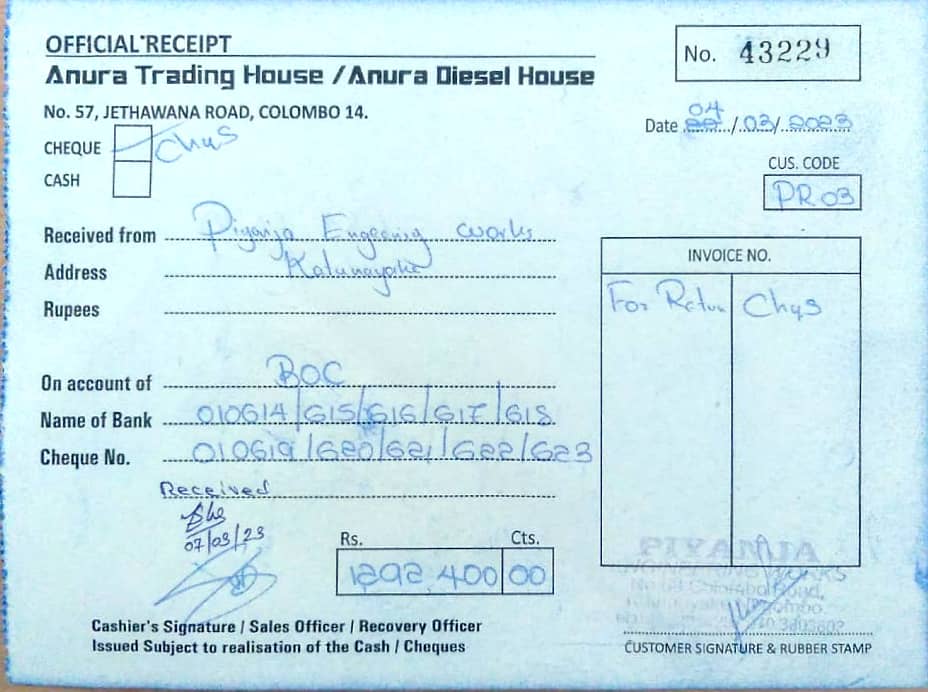 OFFICIAL RECEIPT
No. 43229
Anura Trading House / Anura Diesel House
No. 57, JETHAWANA ROAD, COLOMBO 14.
Date 04/03/2023
CHEQUE Chqs
CASH
CUS. CODE
PR 03
Received from Piyanja Engeering works
Address
Rupees
INVOICE NO.
For Retun Chqs
On account of BOC
Name of Bank 010614/615/616/617/618
Cheque No. 010619/620/621/622/623
Received
07/03/23
Rs. Cts.
1292,400 00
PIYANJA
WORKS
Cashier's Signature / Sales Officer / Recovery Officer
Issued Subject to realisation of the Cash / Cheques
CUSTOMER SIGNATURE & RUBBER STAMP